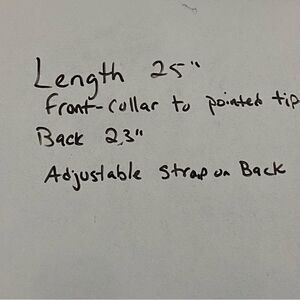 Length 25"
Front-collar to pointed tip
Back 23"
Adjustable Strap on Back